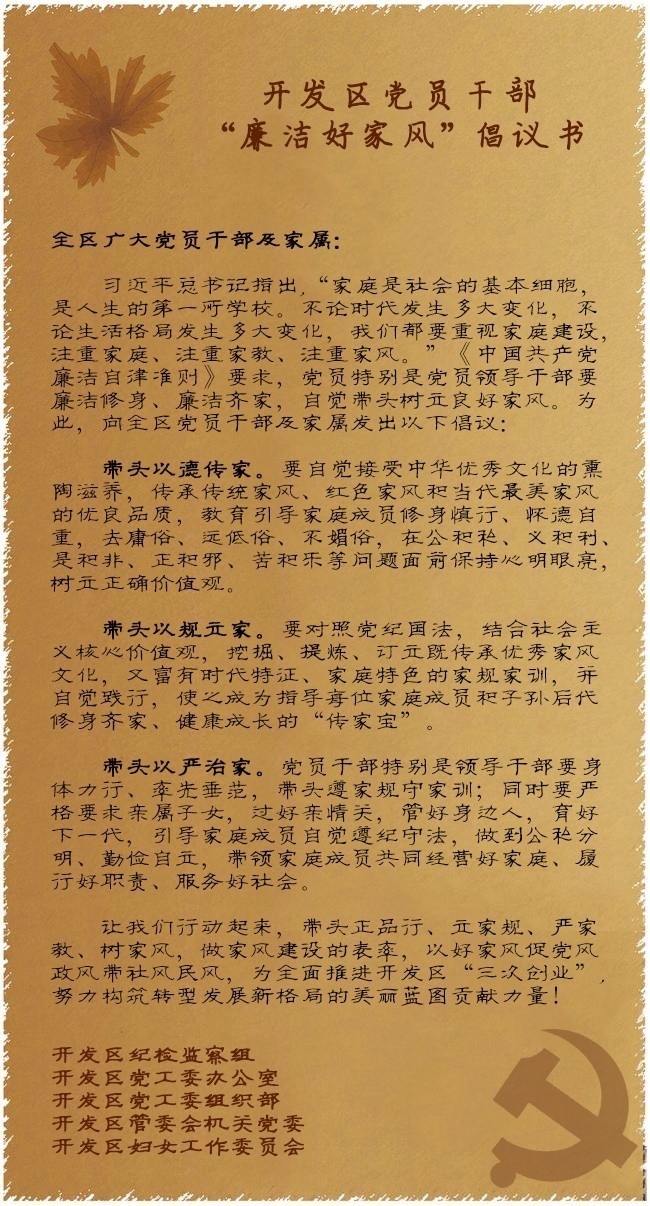 开发区党员干部
“廉洁好家风”倡议书
全区广大党员干部及家属：
习近平总书记指出，“家庭是社会的基本细胞，
是人生的第一所学校。不论时代发生多大变化，不
论生活格局发生多大变化，我们都要重视家庭建设，
注重家庭、注重家教、注重家风。”《中国共产党
廉洁自律准则》要求，党员特别是党员领导干部要
廉洁修身、廉洁齐家，自觉带头树立良好家风。为
此，向全区党员干部及家属发出以下倡议：
带头以德传家。要自觉接受中华优秀文化的熏
陶滋养，传承传统家风、红色家风和当代最美家风
的优良品质，教育引导家庭成员修身慎行、怀德自
重，去庸俗、远低俗、不媚俗，在公和私、义和利、
是和非、正和邪、苦和乐等问题面前保持心明眼亮，
树立正确价值观。
带头以规立家。要对照党纪国法，结合社会主
义核心价值观，挖掘、提炼、订立既传承优秀家风
文化，又富有时代特征、家庭特色的家规家训，并
自觉践行，使之成为指导每位家庭成员和子孙后代
修身齐家、健康成长的“传家宝”。
带头以严治家。党员干部特别是领导干部要身
体力行、率先垂范，带头遵家规守家训；同时要严
格要求亲属子女，过好亲情关，管好身边人，育好
下一代，引导家庭成员自觉遵纪守法，做到公私分
明、勤俭自立，带领家庭成员共同经营好家庭、履
行好职责、服务好社会。
让我们行动起来，带头正品行、立家规、严家
教、树家风，做家风建设的表率，以好家风促党风
政风带社风民风，为全面推进开发区“三次创业”，
努力构筑转型发展新格局的美丽蓝图贡献力量！
开发区纪检监察组
开发区党工委办公室
开发区党工委组织部
开发区管委会机关党委
开发区妇女工作委员会